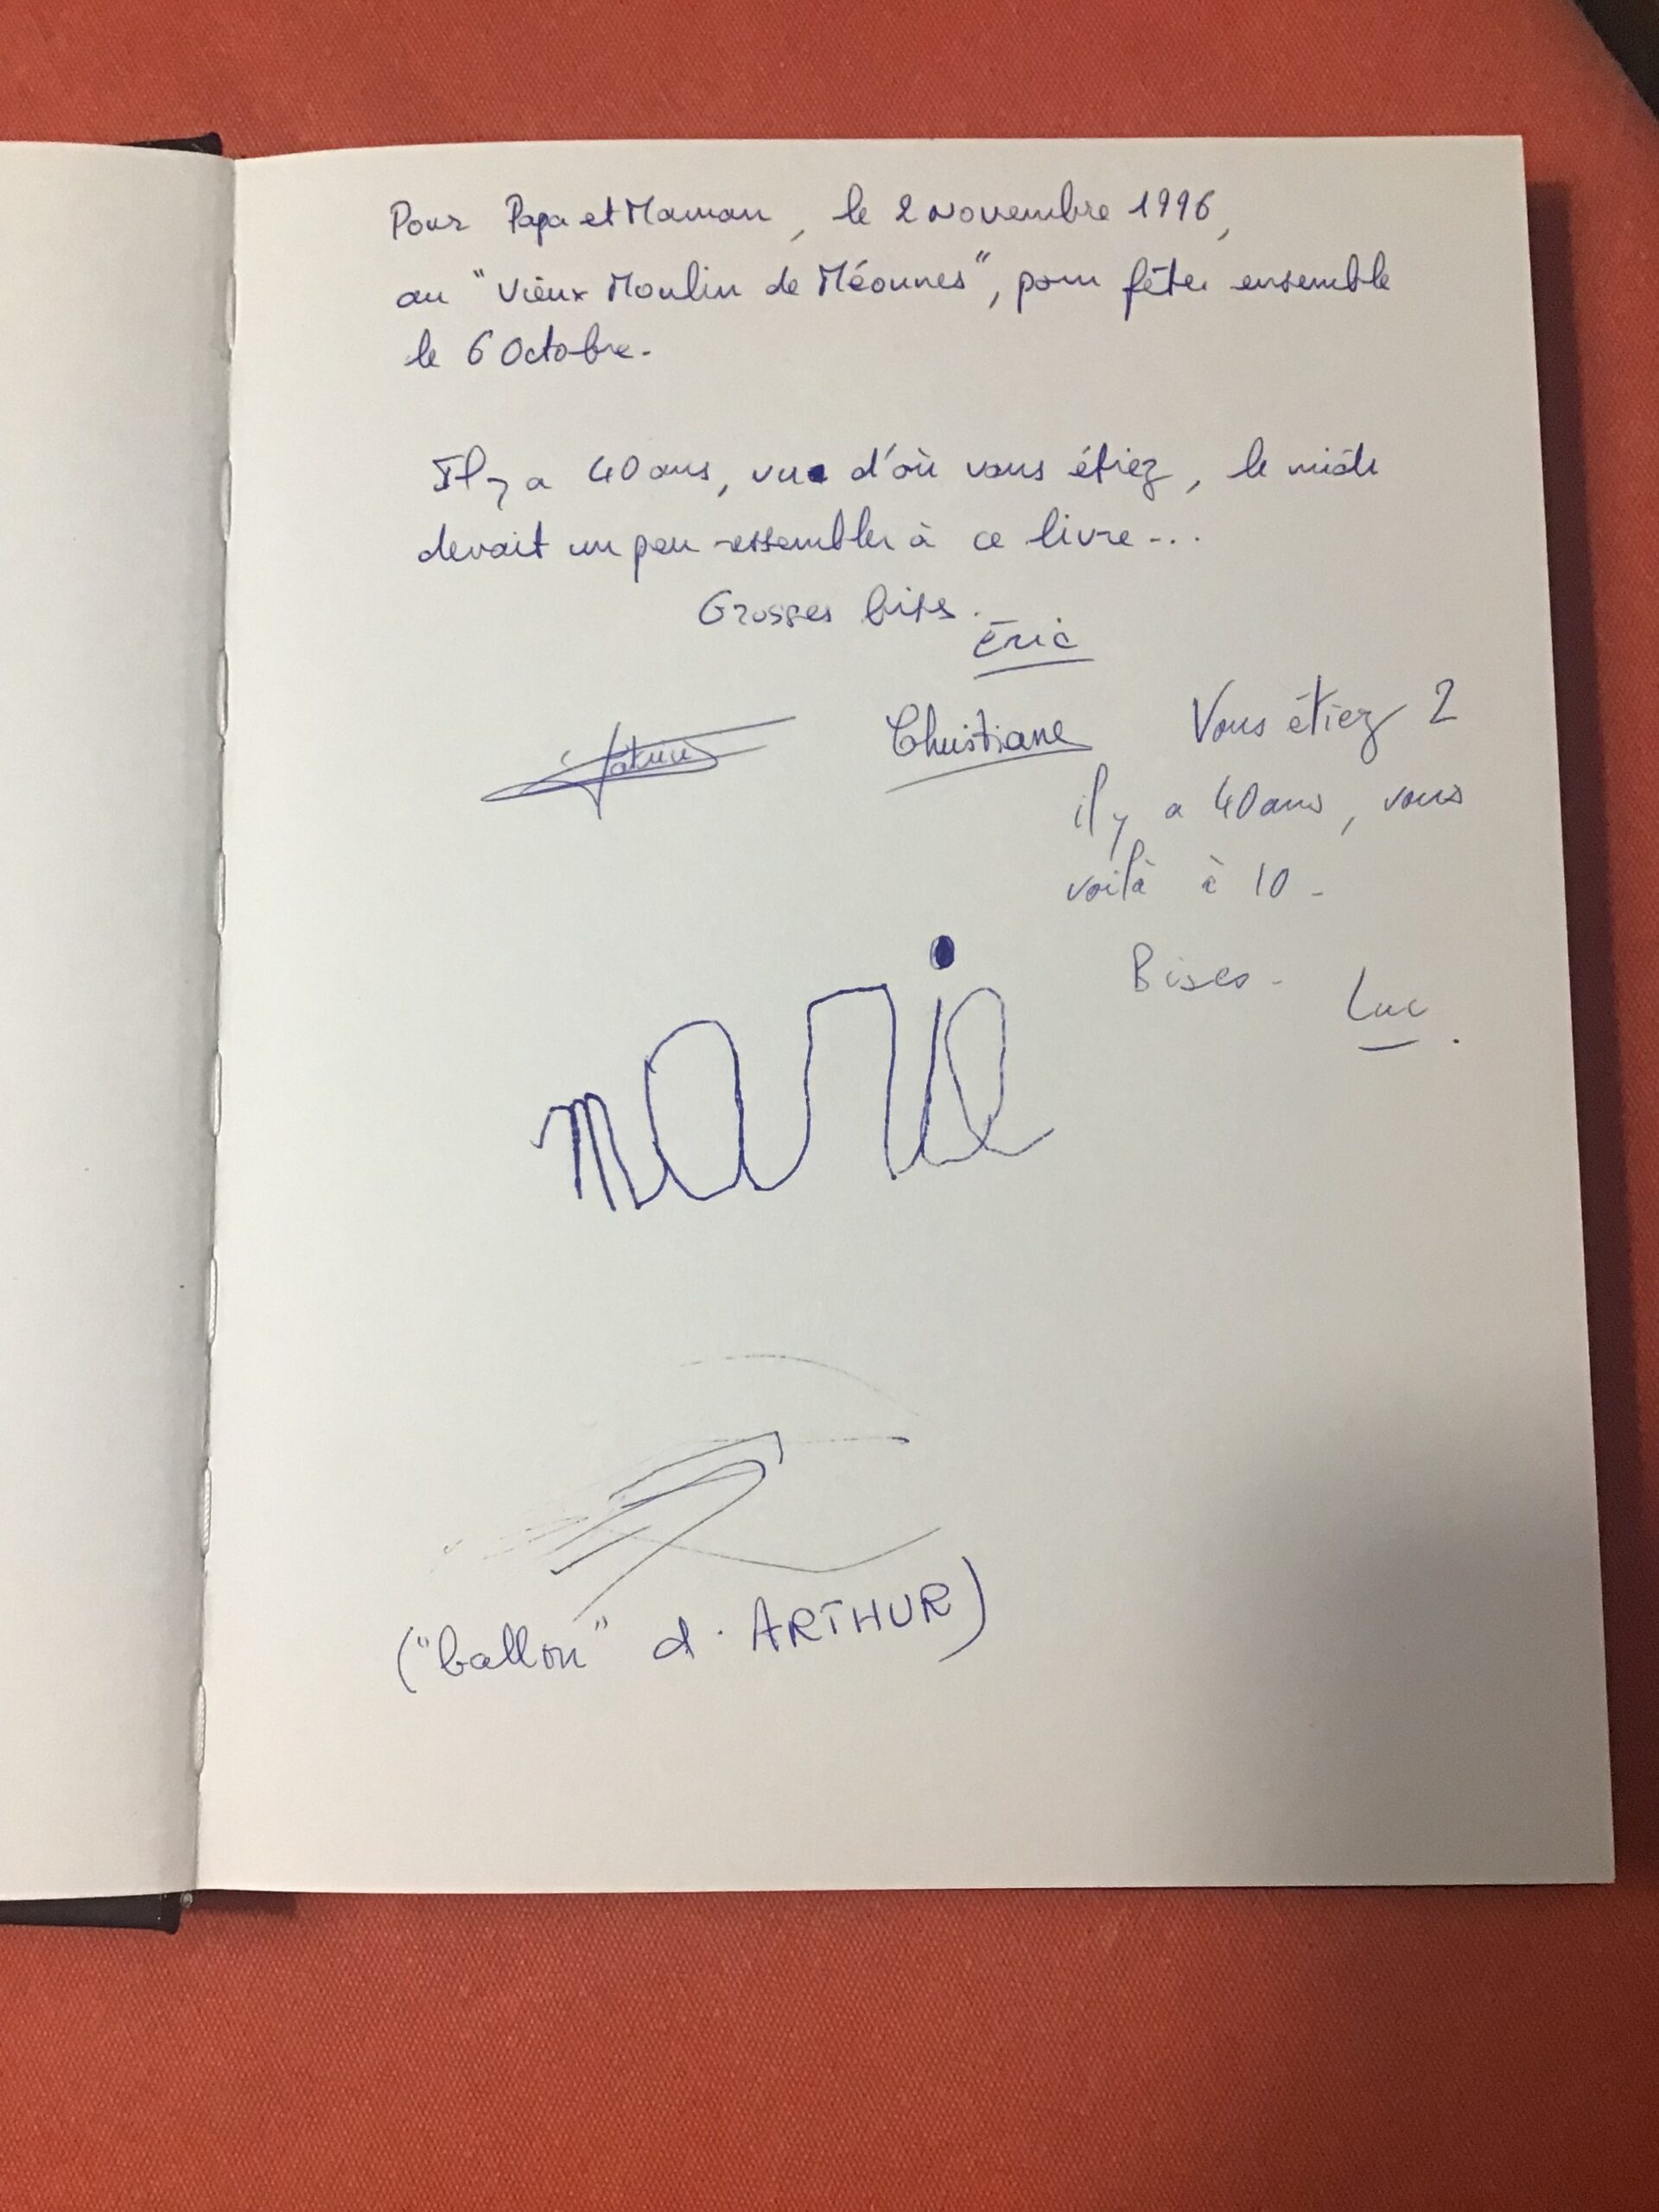 Pour Papa et Maman, le 2 Novembre 1996,
au "Vieux Moulin de Méounes", pour fêter ensemble
le 6 Octobre.
Il y a 40 ans, vu d'où vous étiez, le
devait un peu ressembler à ce livre...
Grosses bises.
Éric
Christiane
Vous étiez 2
il y a 40 ans, vous
voilà à 10 -
Bises -
Luc.
marie
("ballon" d'ARTHUR)